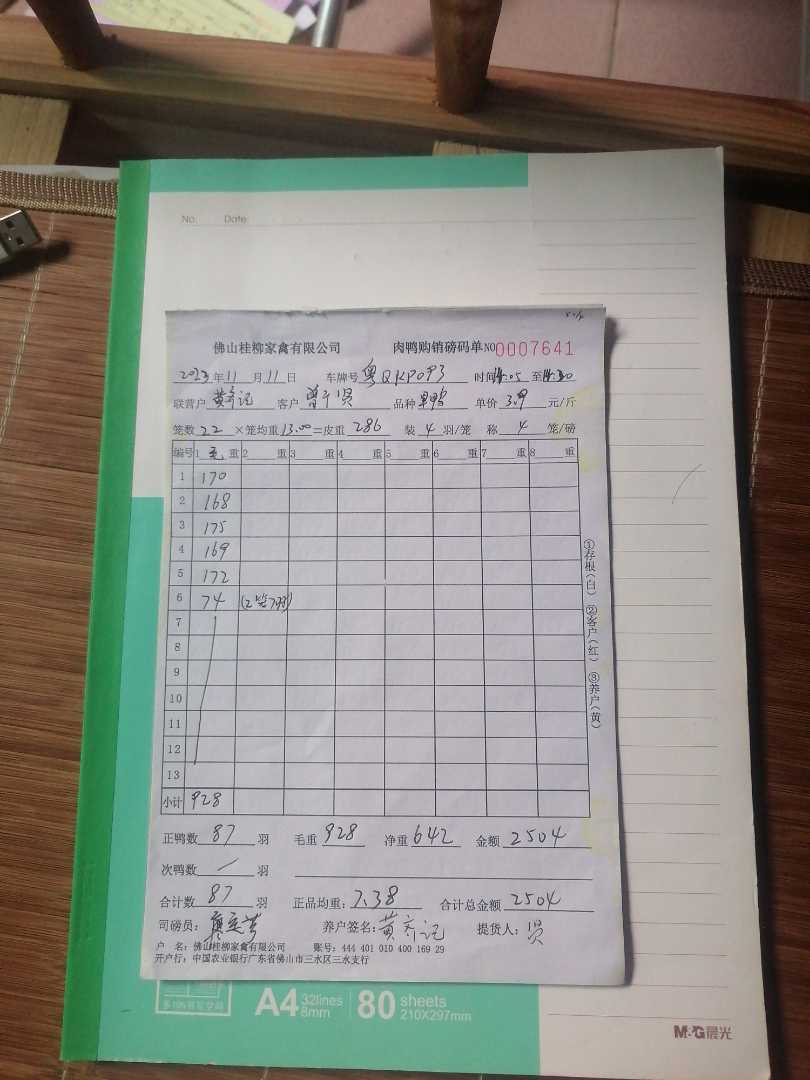 No. Date
佛山桂柳家禽有限公司 肉鸭购销磅码单 NO 0007641
2023年11月11日 车牌号 粤QKP093 时间14:05至14:30
联营户 黄齐记 客户 品种 单价 3.9 元/斤
笼数 22 ×笼均重 13.00 =皮重 286 装 4 羽/笼 称 4 笼/磅
编号 1 毛 重 2 重 3 重 4 重 5 重 6 重 7 重 8 重
1 170
2 168
3 175
4 169
5 172
6 74 (2笼7羽)
7
8
9
10
11
12
13
小计 928
①存根(白) ②客户(红) ③养户(黄)
正鸭数 87 羽 毛重 928 净重 642 金额 2504
次鸭数 / 羽
合计数 87 羽 正品均重: 7.38 合计总金额 2504
司磅员: 养户签名: 黄齐记 提货人:
户 名: 佛山桂柳家禽有限公司 账号: 444 401 010 400 169 29
开户行: 中国农业银行广东省佛山市三水区三水支行
A4 32lines 8mm 80 sheets 210X297mm
M&G晨光